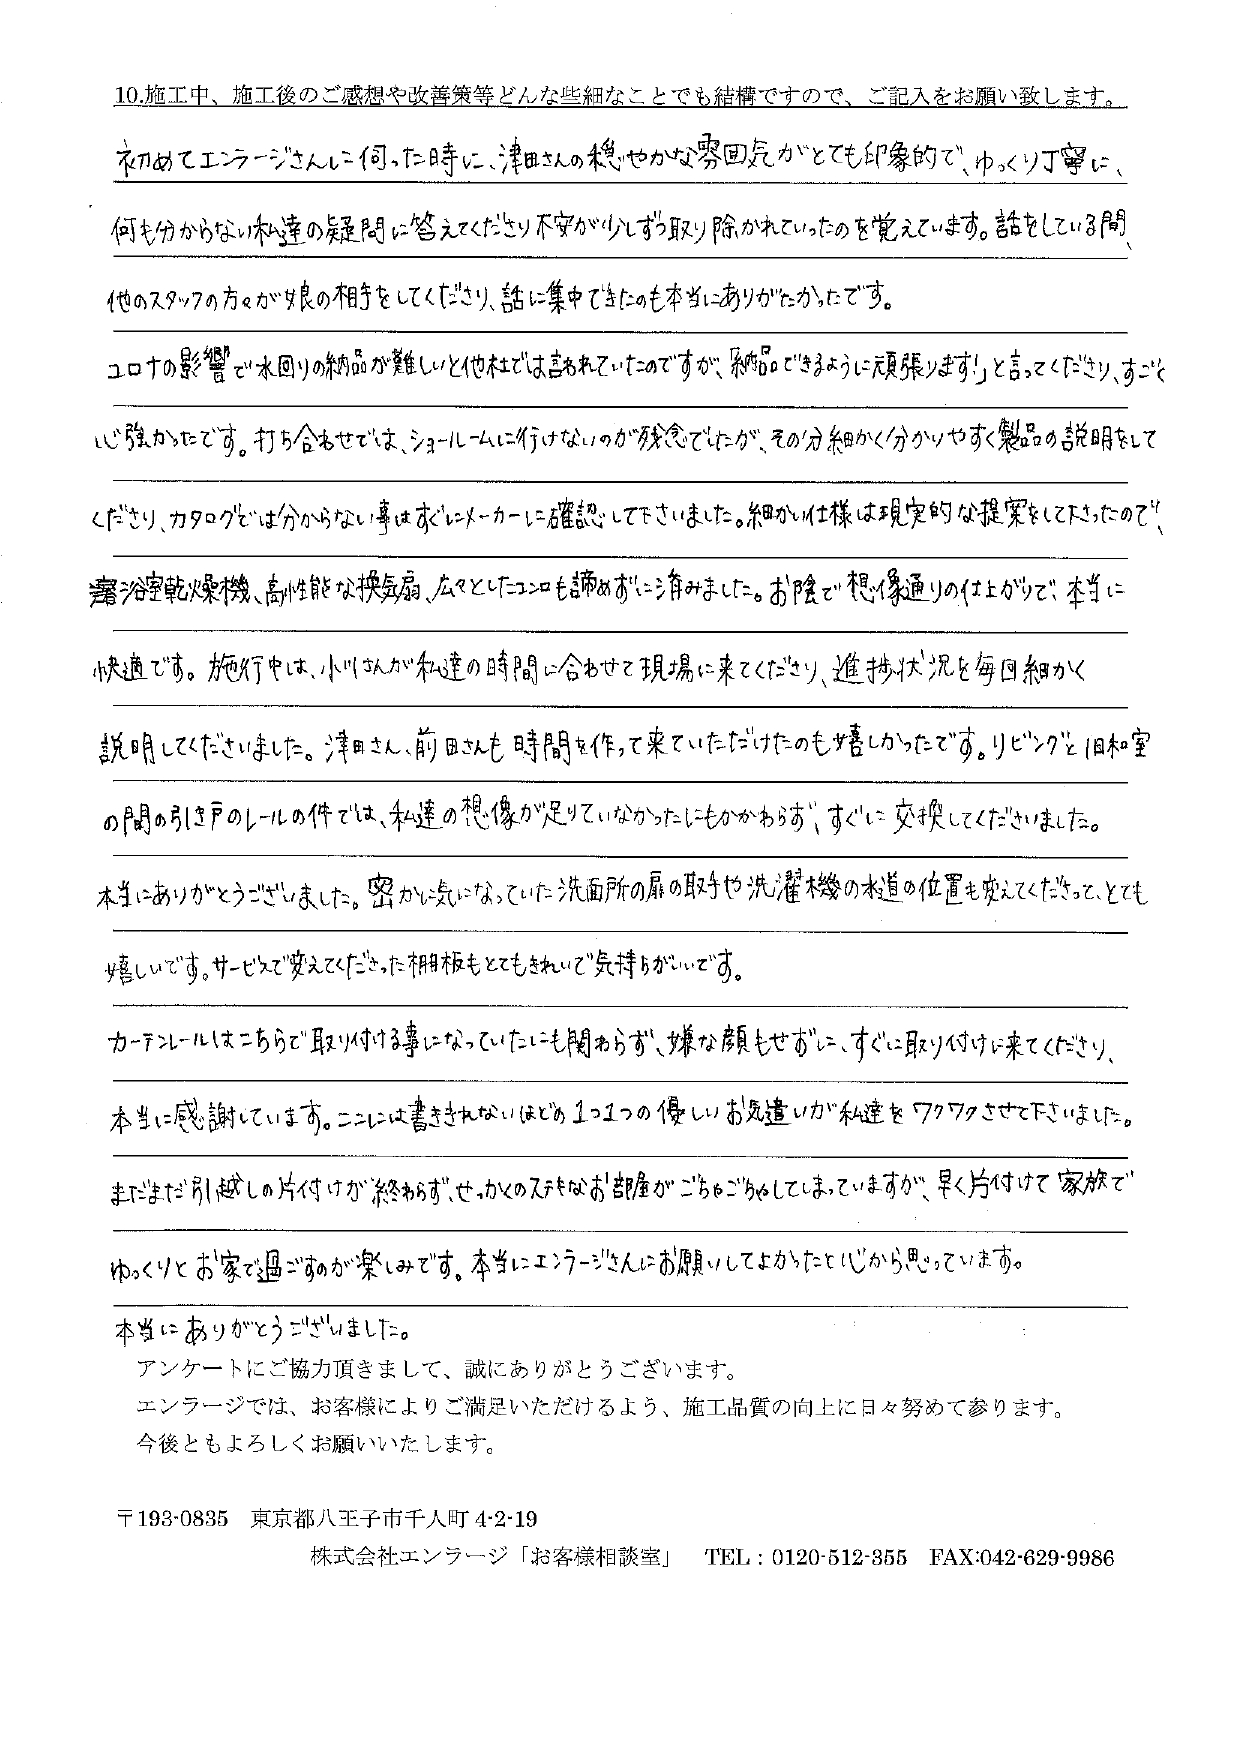 10.施工中、施工後のご感想や改善策等どんな些細なことでも結構ですので、ご記入をお願い致します。
初めてエンラージさんに伺った時に、津田さんの穏やかな雰囲気がとても印象的で、ゆっくり丁寧に、
何も分からない私達の疑問に答えてくださり不安が少しずつ取り除かれていったのを覚えています。話をしている間、
他のスタッフの方々が娘の相手をしてくださり、話に集中できたのも本当にありがたかったです。
コロナの影響で水回りの納品が難しいと他社では言われていたのですが、「納品できるように頑張ります!」と言ってくださり、すごく
心強かったです。打ち合わせでは、ショールームに行けないのが残念でしたが、その分細かく分かりやすく製品の説明をして
くださり、カタログでは分からない事はすぐにメーカーに確認して下さいました。細かい仕様は現実的な提案をして下さったので、
浴室乾燥機、高性能な換気扇、広々としたコンロも諦めずに済みました。お陰で想像通りの仕上がりで、本当に
快適です。施行中は、小川さんが私達の時間に合わせて現場に来てくださり、進捗状況を毎回細かく
説明してくださいました。津田さん、前田さんも時間を作って来ていただけたのも嬉しかったです。リビングと旧和室
の間の引き戸のレールの件では、私達の想像が足りていなかったにもかかわらず、すぐに交換してくださいました。
本当にありがとうございました。密かに気になっていた洗面所の扉の取手や洗濯機の水道の位置も変えてくださって、とても
嬉しいです。サービスで変えてくださった棚板もとてもきれいで気持ちがいいです。
カーテンレールはこちらで取り付ける事になっていたにも関わらず、嫌な顔もせずに、すぐに取り付けに来てくださり、
本当に感謝しています。ここには書ききれないほどの1つ1つの優しいお気遣いが私達をワクワクさせて下さいました。
まだまだ引越しの片付けが終わらず、せっかくのステキなお部屋がごちゃごちゃしてしまっていますが、早く片付けて家族で
ゆっくりとお家で過ごすのが楽しみです。本当にエンラージさんにお願いしてよかったと心から思っています。
本当にありがとうございました。
アンケートにご協力頂きまして、誠にありがとうございます。
エンラージでは、お客様によりご満足いただけるよう、施工品質の向上に日々努めて参ります。
今後ともよろしくお願いいたします。
〒193-0835 東京都八王子市千人町 4-2-19
株式会社エンラージ「お客様相談室」 TEL:0120-512-355 FAX:042-629-9986